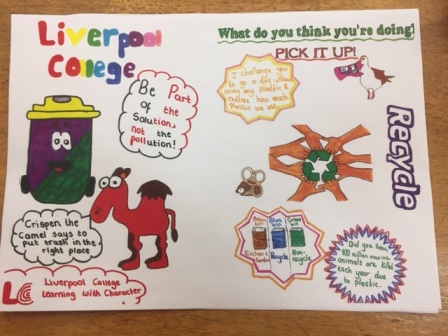 Liverpool
College
What do you think you're doing!
PICK IT UP!
Be Part
of the
Solution,
not the
pollution!
I challenge you
to go a day without
using any plastic &
realise how much
Plastic we use.
Recycle
Crispen the
Camel says to
put trash in the
right place
Liverpool College
Learning with Character
LC
Brown
bin
Blue
bin
Green
bin
Kitchen &
Garden
Recycle
Non-
recycle
Did you know
100 million marine
animals are killed
each year due
to plastic.